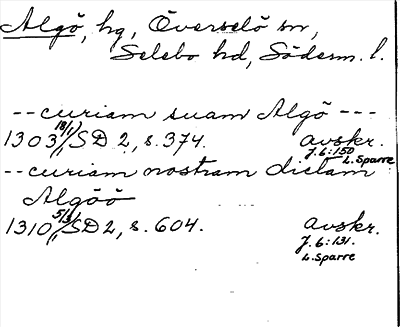 Algö, hg, Överselö sn,
Selebo hd, Söderm. l.
-- curiam suam Algö ---
1303 18/1, SD 2, s. 374. avskr.
J. 6:150
L. Sparre
-- curiam nostram dictam
Algöö
1310 5/3, SD 2, s. 604. avskr.
J. 6:131.
L. Sparre